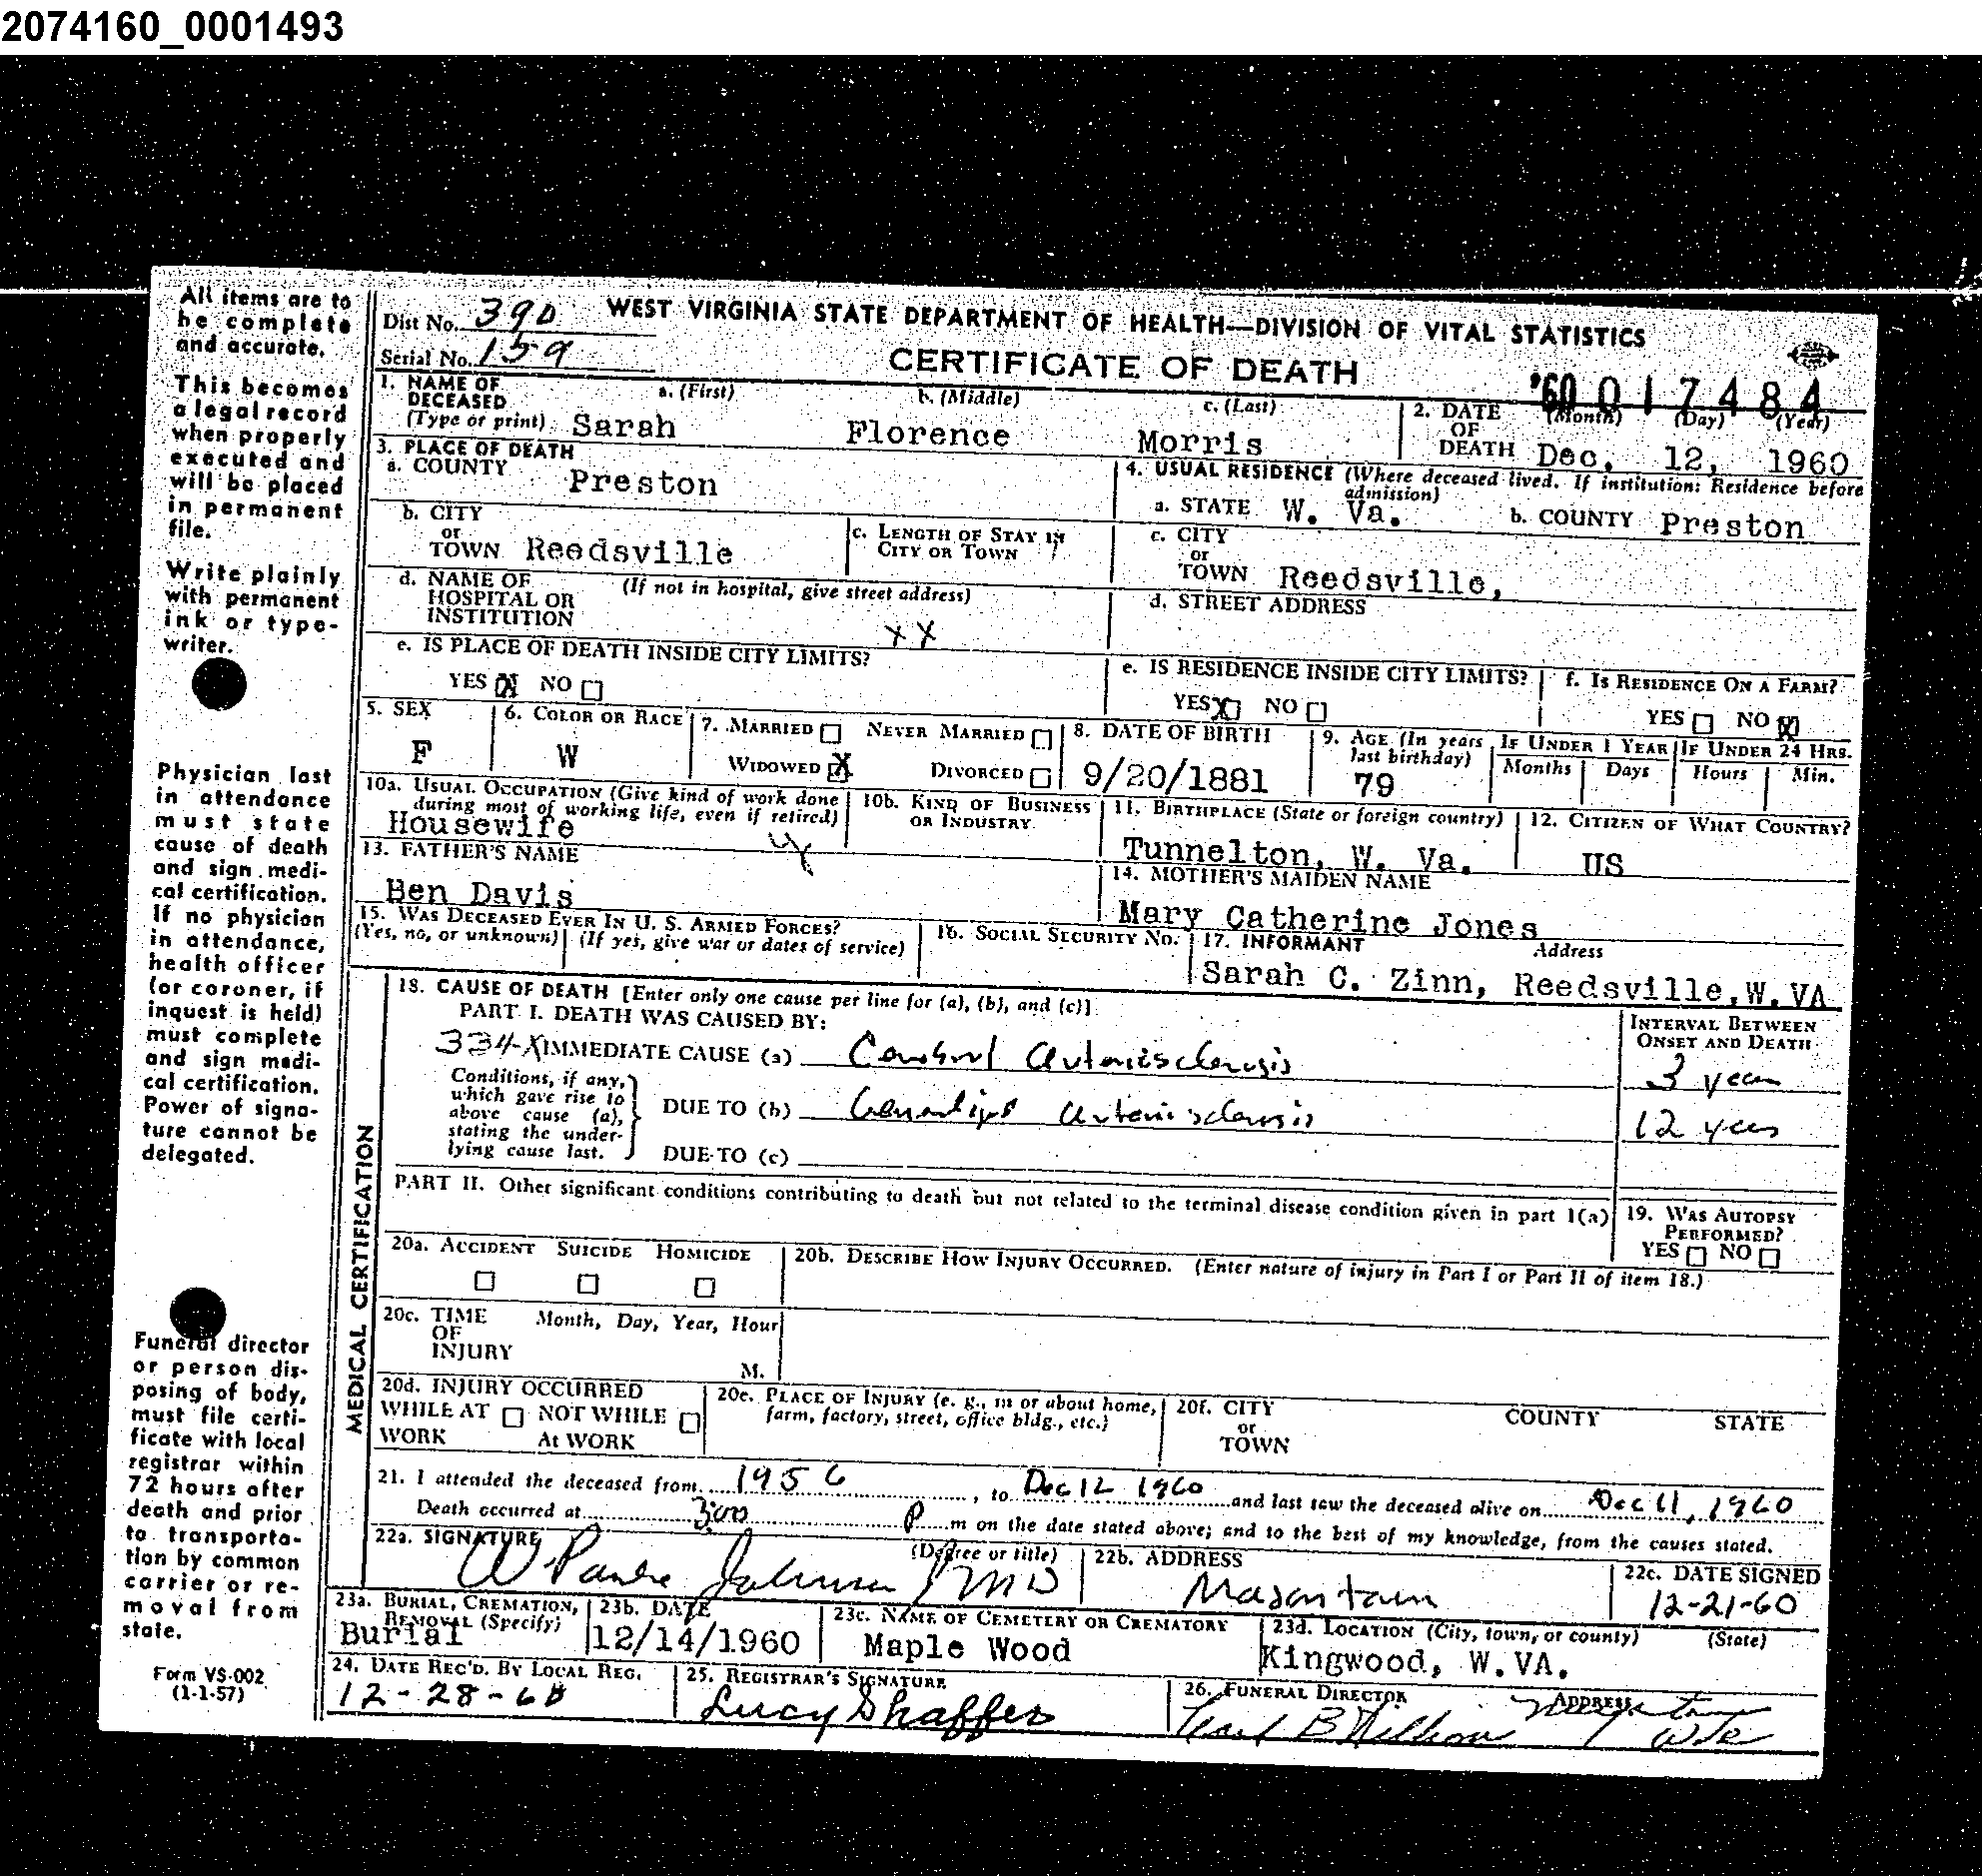 2074160_0001493
All items are to be complete and accurate.
This becomes a legal record when properly executed and will be placed in permanent file.
Write plainly with permanent ink or type-writer.
Physician last in attendance must state cause of death and sign medi-cal certification. If no physician in attendance, health officer (or coroner, if inquest is held) must complete and sign medi-cal certification. Power of signa-ture cannot be delegated.
Funeral director or person dis-posing of body, must file certi-ficate with local registrar within 72 hours after death and prior to transporta-tion by common carrier or re-moval from state.
Form VS-002
(1-1-57)
Dist No. 390 WEST VIRGINIA STATE DEPARTMENT OF HEALTH—DIVISION OF VITAL STATISTICS
Serial No. 159 CERTIFICATE OF DEATH
'60 017484
1. NAME OF DECEASED (Type or print) a. (First) Sarah b. (Middle) Florence c. (Last) Morris
2. DATE OF DEATH (Month) (Day) (Year) Dec. 12, 1960
3. PLACE OF DEATH
a. COUNTY Preston
4. USUAL RESIDENCE (Where deceased lived. If institution: Residence before admission)
a. STATE W. Va. b. COUNTY Preston
b. CITY or TOWN Reedsville
c. LENGTH OF STAY IN CITY OR TOWN
c. CITY or TOWN Reedsville,
d. NAME OF HOSPITAL OR INSTITUTION (If not in hospital, give street address) XX
d. STREET ADDRESS
e. IS PLACE OF DEATH INSIDE CITY LIMITS?
YES X NO
e. IS RESIDENCE INSIDE CITY LIMITS?
YES X NO
f. IS RESIDENCE ON A FARM?
YES NO X
5. SEX F
6. COLOR OR RACE W
7. MARRIED NEVER MARRIED
WIDOWED X DIVORCED
8. DATE OF BIRTH 9/20/1881
9. AGE (In years last birthday) 79
IF UNDER 1 YEAR Months Days
IF UNDER 24 HRS. Hours Min.
10a. USUAL OCCUPATION (Give kind of work done during most of working life, even if retired) Housewife
10b. KIND OF BUSINESS OR INDUSTRY
11. BIRTHPLACE (State or foreign country) Tunnelton, W. Va.
12. CITIZEN OF WHAT COUNTRY? US
13. FATHER'S NAME
Ben Davis
14. MOTHER'S MAIDEN NAME
Mary Catherine Jones
15. WAS DECEASED EVER IN U. S. ARMED FORCES?
(Yes, no, or unknown) (If yes, give war or dates of service)
16. SOCIAL SECURITY NO.
17. INFORMANT Address
Sarah C. Zinn, Reedsville, W.VA
MEDICAL CERTIFICATION
18. CAUSE OF DEATH [Enter only one cause per line for (a), (b), and (c)]
PART I. DEATH WAS CAUSED BY:
INTERVAL BETWEEN ONSET AND DEATH
334X IMMEDIATE CAUSE (a) Cerebral arteriosclerosis 3 years
Conditions, if any, which gave rise to above cause (a), stating the under-lying cause last.
DUE TO (b) Generalized arteriosclerosis 12 years
DUE TO (c)
PART II. Other significant conditions contributing to death but not related to the terminal disease condition given in part I(a)
19. WAS AUTOPSY PERFORMED?
YES NO
20a. ACCIDENT SUICIDE HOMICIDE
20b. DESCRIBE HOW INJURY OCCURRED. (Enter nature of injury in Part I or Part II of item 18.)
20c. TIME OF INJURY Month, Day, Year, Hour
M.
20d. INJURY OCCURRED
WHILE AT WORK NOT WHILE At WORK
20e. PLACE OF INJURY (e. g., in or about home, farm, factory, street, office bldg., etc.)
20f. CITY or TOWN COUNTY STATE
21. I attended the deceased from 1956, to Dec 12 1960 and last saw the deceased alive on Dec 11, 1960
Death occurred at 3:00 P m on the date stated above; and to the best of my knowledge, from the causes stated.
22a. SIGNATURE (Degree or title) Johnson MD
22b. ADDRESS Masontown
22c. DATE SIGNED 12-21-60
23a. BURIAL, CREMATION, REMOVAL (Specify) Burial
23b. DATE 12/14/1960
23c. NAME OF CEMETERY OR CREMATORY Maple Wood
23d. LOCATION (City, town, or county) (State) Kingwood, W.VA.
24. DATE REC'D. BY LOCAL REG. 12-28-60
25. REGISTRAR'S SIGNATURE Lucy Shaffer
26. FUNERAL DIRECTOR ADDRESS